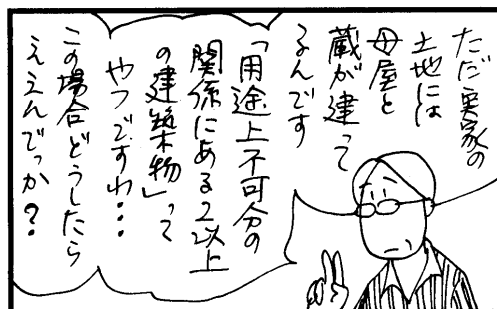 ただ実家の
土地には
母屋と
蔵が建って
るんです
「用途上不可分の
関係にある2以上
の建築物」って
やつですわ・・・
この場合どうしたら
ええんでっか？